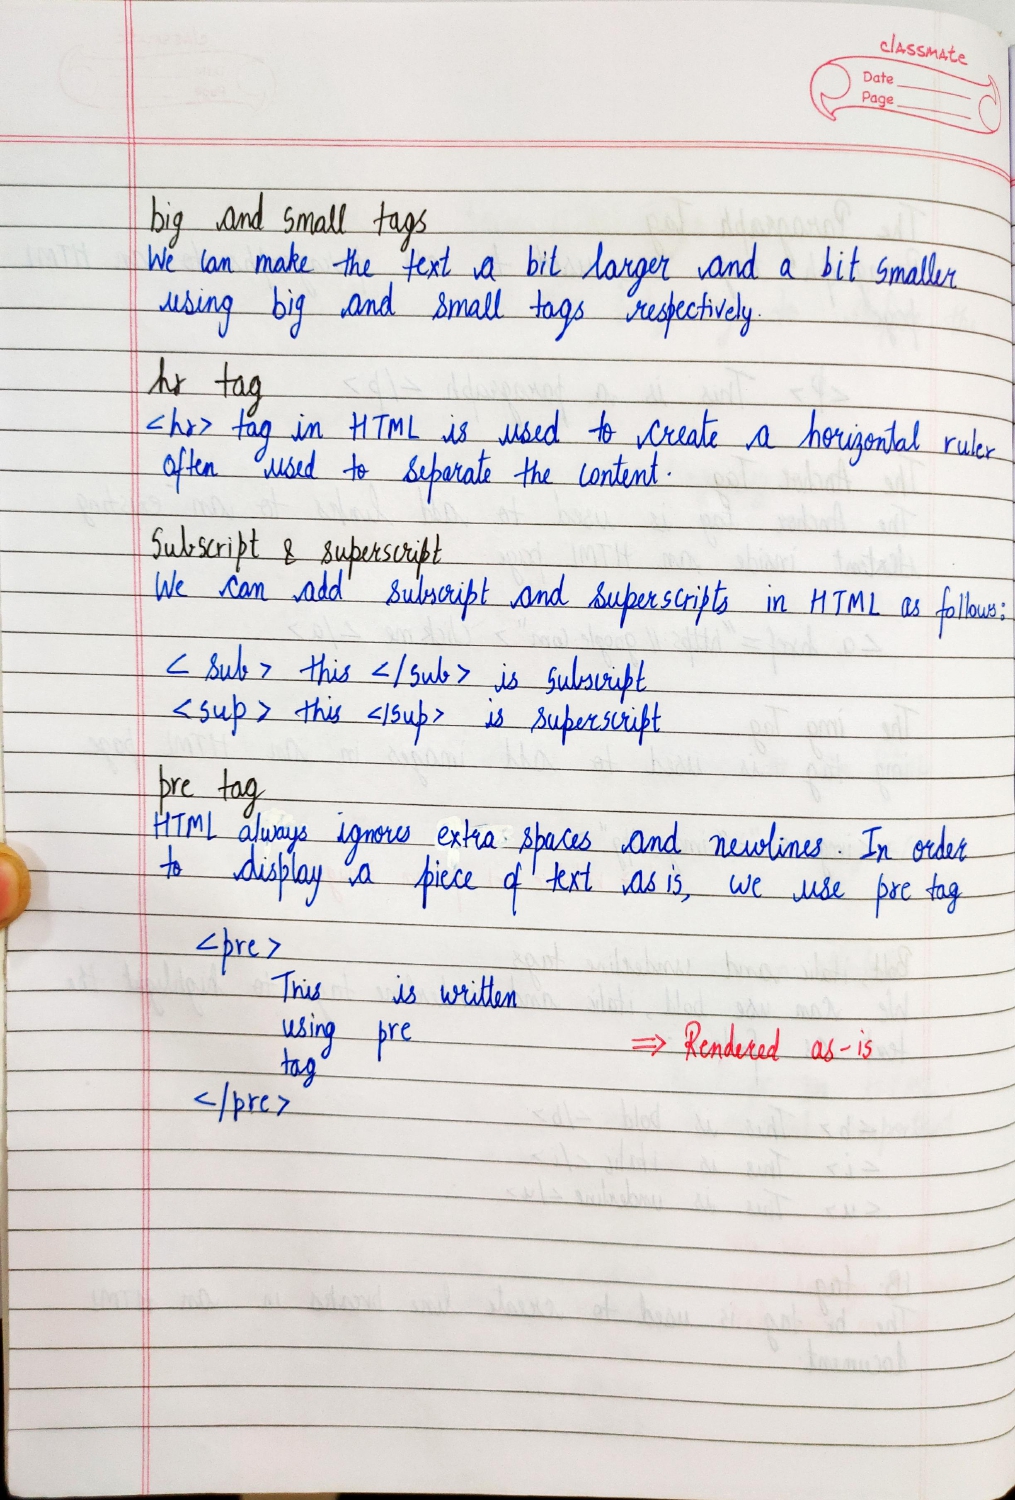 classmate
Date
Page
big and small tags
We can make the text a bit larger and a bit smaller
using big and small tags respectively.
hr tag
<hr> tag in HTML is used to create a horizontal ruler
often used to separate the content.
Subscript & superscript
We can add subscript and superscripts in HTML as follows:
<sub> this </sub> is subscript
<sup> this </sup> is superscript
pre tag
HTML always ignores extra spaces and newlines. In order
to display a piece of text as is, we use pre tag
<pre>
This is written
using pre
⇒ Rendered as-is
tag
</pre>